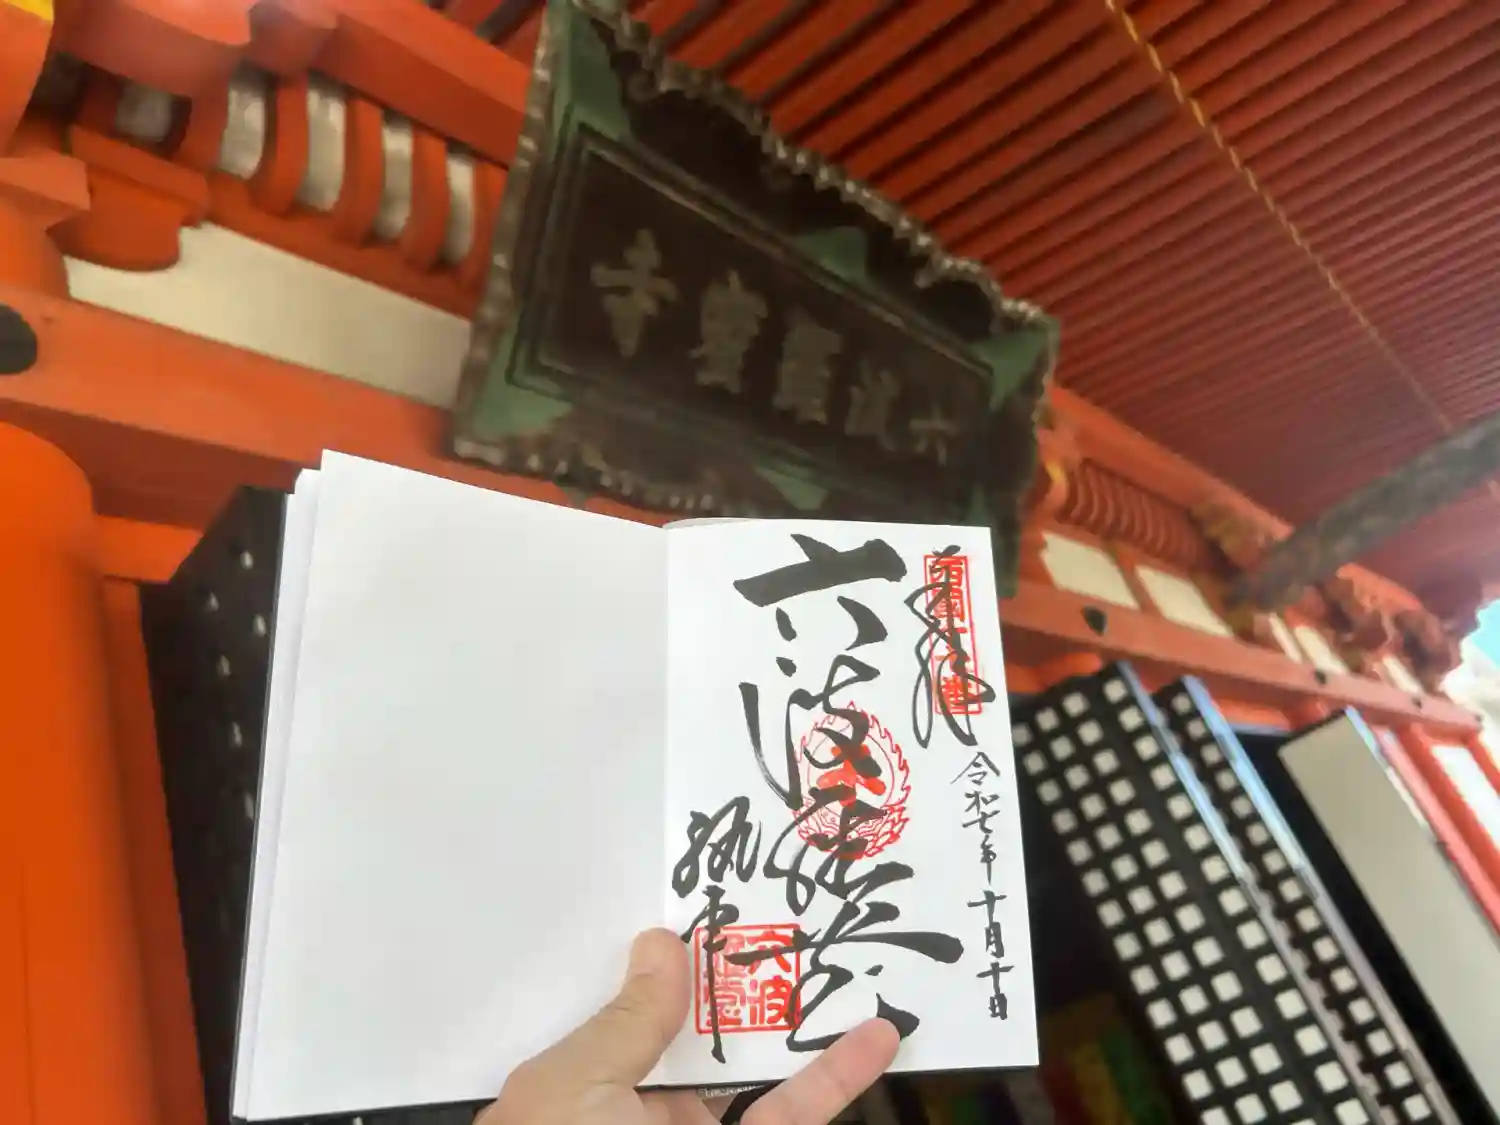 六波羅蜜寺
奉拝
西国十七番
令和七年十月十日
六波羅堂
執事
六波羅堂